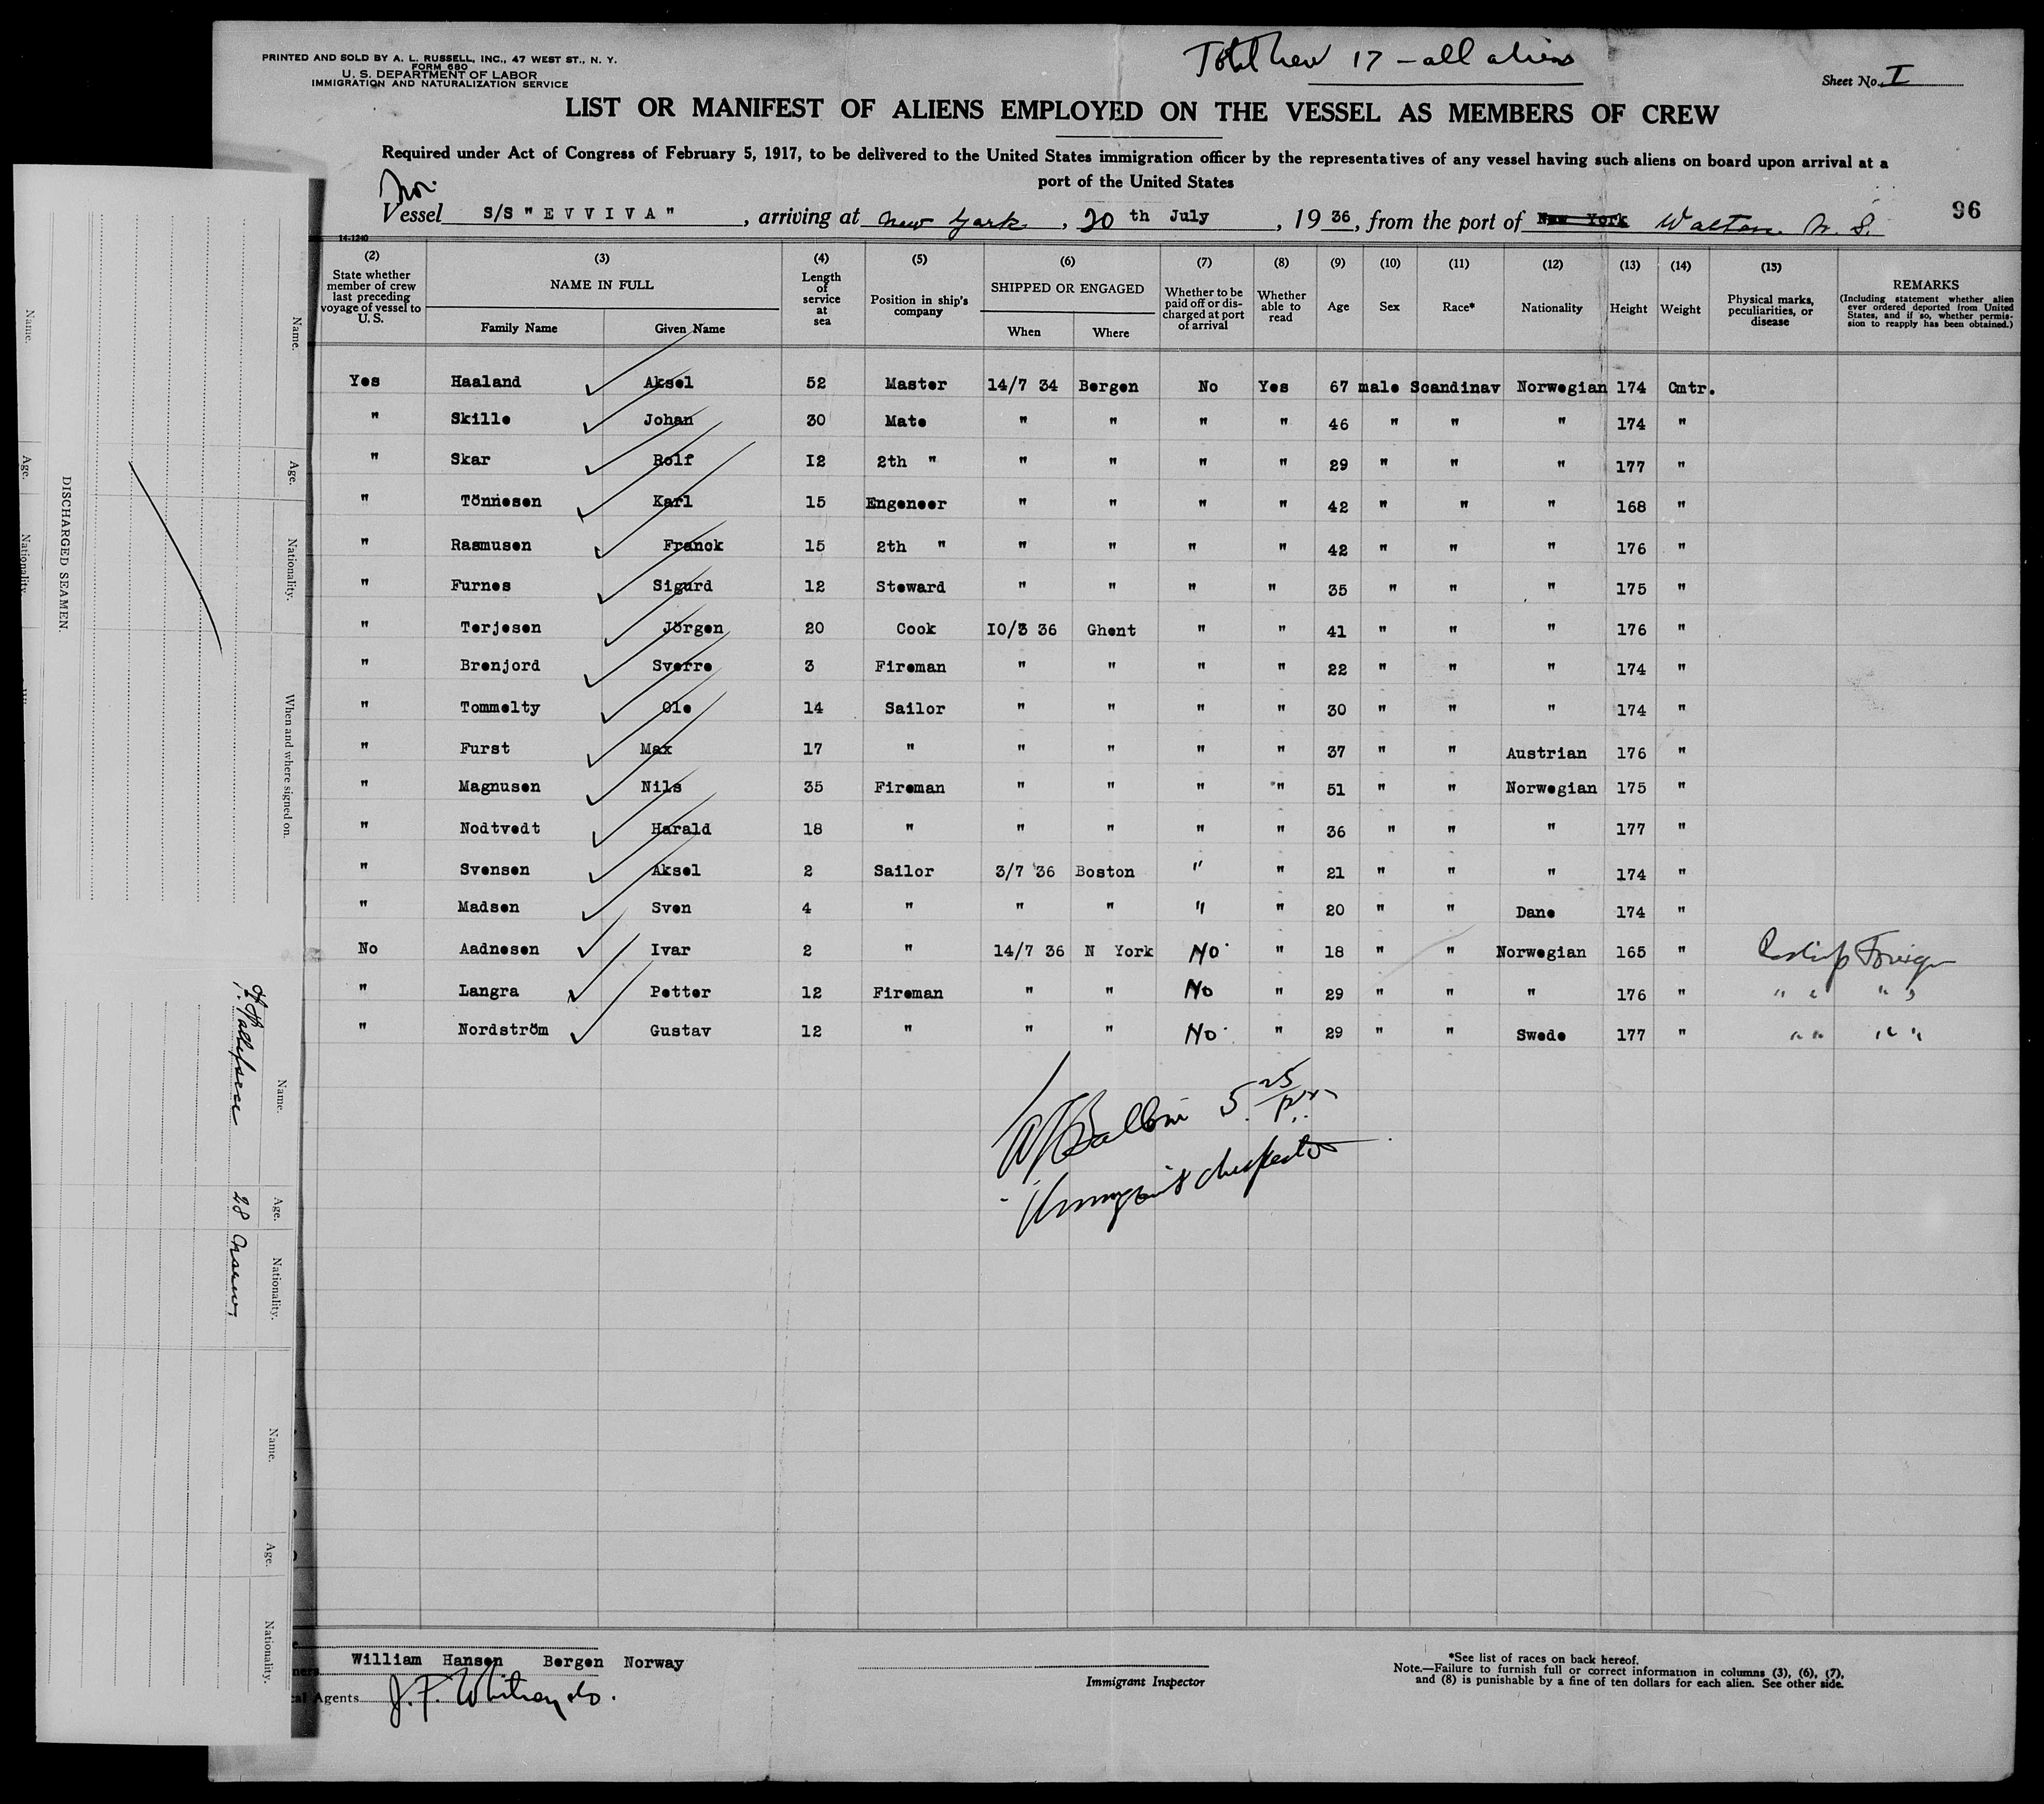 PRINTED AND SOLD BY A. L. RUSSELL, INC., 47 WEST ST., N. Y.
FORM 680
U. S. DEPARTMENT OF LABOR
IMMIGRATION AND NATURALIZATION SERVICE
Total Crew 17 - all aliens
Sheet No. I
LIST OR MANIFEST OF ALIENS EMPLOYED ON THE VESSEL AS MEMBERS OF CREW
Required under Act of Congress of February 5, 1917, to be delivered to the United States immigration officer by the representatives of any vessel having such aliens on board upon arrival at a
port of the United States
Nor.
Vessel S/S "EVVIVA", arriving at New York, 20 th July, 19 36, from the port of New York Walton N. S.
96
14-1240
(2) State whether member of crew last preceding voyage of vessel to U. S.
(3) NAME IN FULL Family Name Given Name
(4) Length of service at sea
(5) Position in ship's company
(6) SHIPPED OR ENGAGED When Where
(7) Whether to be paid off or discharged at port of arrival
(8) Whether able to read
(9) Age
(10) Sex
(11) Race*
(12) Nationality
(13) Height
(14) Weight
(15) Physical marks, peculiarities, or disease
REMARKS (Including statement whether alien ever ordered deported from United States, and if so, whether permission to reapply has been obtained.)
Yes Haaland Aksel 52 Master 14/7 34 Bergen No Yes 67 male Scandinav Norwegian 174 Cmtr.
" Skille Johan 30 Mate " " " " 46 " " " 174 "
" Skar Rolf I2 2th " " " " " 29 " " " 177 "
" Tönnesen Karl 15 Engeneer " " " " 42 " " " 168 "
" Rasmusen Franck 15 2th " " " " " 42 " " " 176 "
" Furnes Sigurd 12 Steward " " " " 35 " " " 175 "
" Terjesen Jörgen 20 Cook IO/3 36 Ghent " " 41 " " " 176 "
" Brenjord Sverre 3 Fireman " " " " 22 " " " 174 "
" Tommelty Ole 14 Sailor " " " " 30 " " " 174 "
" Furst Max 17 " " " " " 37 " " Austrian 176 "
" Magnusen Nils 35 Fireman " " " " 51 " " Norwegian 175 "
" Nodtvedt Harald 18 " " " " " 36 " " " 177 "
" Svensen Aksel 2 Sailor 3/7 36 Boston " " 21 " " " 174 "
" Madsen Sven 4 " " " " " 20 " " Dane 174 "
No Aadnesen Ivar 2 " 14/7 36 N York No " 18 " " Norwegian 165 " Foreign
" Langra Petter 12 Fireman " " No " 29 " " " 176 " " " " "
" Nordström Gustav 12 " " " No " 29 " " Swede 177 " " " " "
5 25 p.m.
Immigrant Inspector
William Hansen Bergen Norway
al Agents J. F. Whitney Co.
Immigrant Inspector
*See list of races on back hereof.
Note.—Failure to furnish full or correct information in columns (3), (6), (7),
and (8) is punishable by a fine of ten dollars for each alien. See other side.
DISCHARGED SEAMEN.
Name. Age. Nationality. When and where signed on.
Name. Age. Nationality.
28
Name. Age. Nationality.
Name. Age. Nationality.